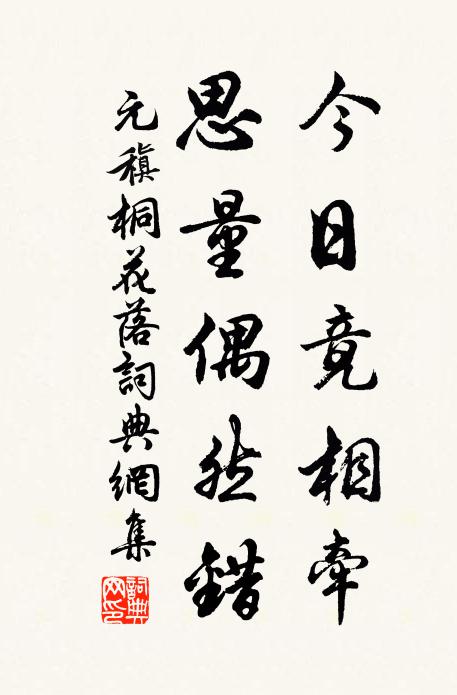 今日竟相牽
思量偶然錯
元稹桐花落詞典網集
詞典网印